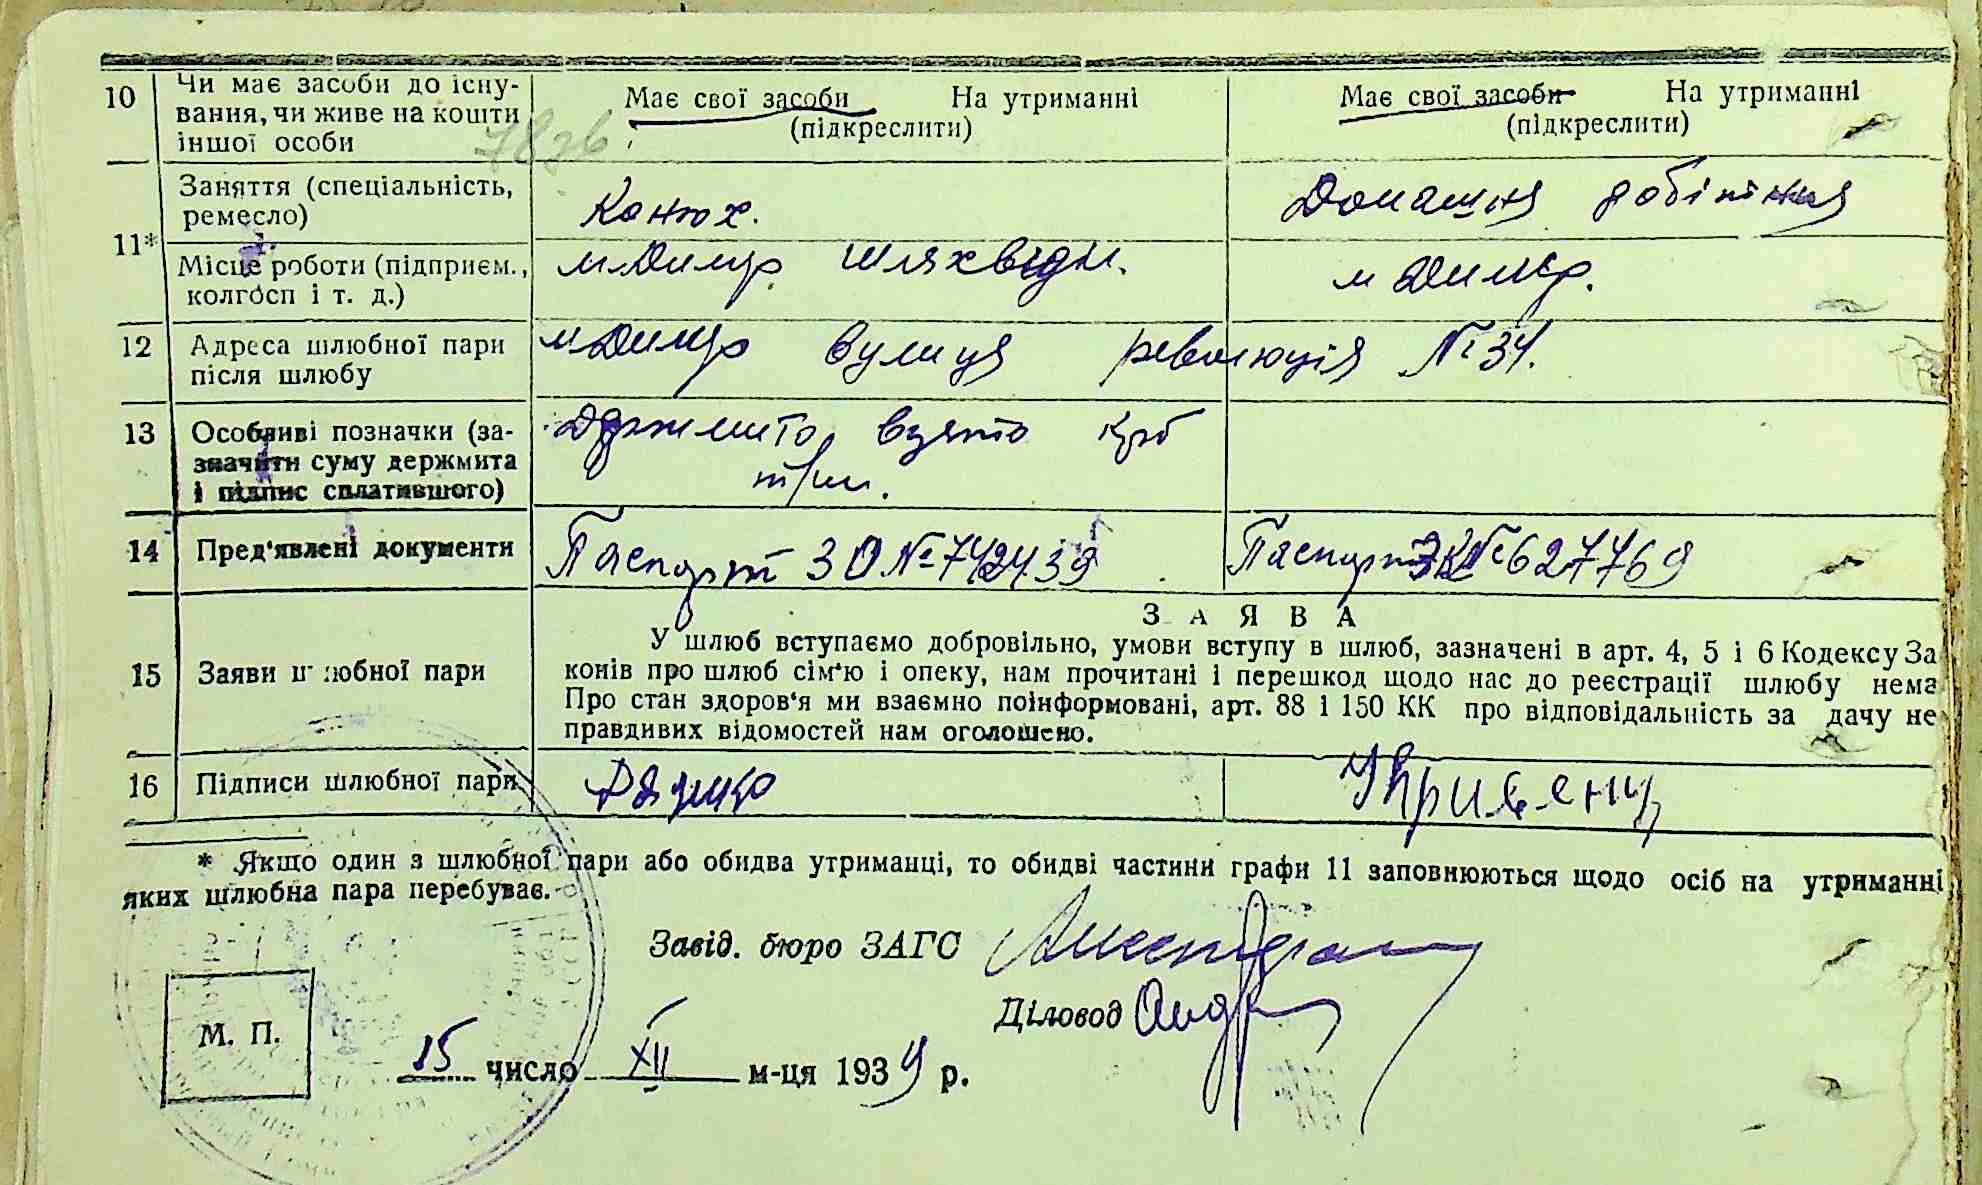 10 Чи має засоби до існу-
вання, чи живе на кошти
іншої особи
Має свої засоби На утриманні
(підкреслити)
Має свої засоби На утриманні
(підкреслити)
11* Заняття (спеціальність,
ремесло)
Конюх.
Домашня робітниця
Місце роботи (підприєм.,
колгосп і т. д.)
м Димер шляхвідм.
м Димер.
12 Адреса шлюбної пари
після шлюбу
м Димер вулиця революція № 34.
13 Особливі позначки (за-
значити суму держмита
і підпис сплатившого)
Держмито взято крб
три.
14 Пред'явлені документи
Паспорт ЗО № 742439
Паспорт ЗК № 627769
15 Заяви шлюбної пари
ЗАЯВА
У шлюб вступаємо добровільно, умови вступу в шлюб, зазначені в арт. 4, 5 і 6 Кодексу За
конів про шлюб сім'ю і опеку, нам прочитані і перешкод щодо нас до реєстрації шлюбу нема
Про стан здоров'я ми взаємно поінформовані, арт. 88 і 150 КК про відповідальність за дачу не
правдивих відомостей нам оголошено.
16 Підписи шлюбної пари
* Якщо один з шлюбної пари або обидва утриманці, то обидві частини графи 11 заповнюються щодо осіб на утриманні
яких шлюбна пара перебуває.
Завід. бюро ЗАГС
Діловод
М. П.
15 число XII м-ця 1939 р.